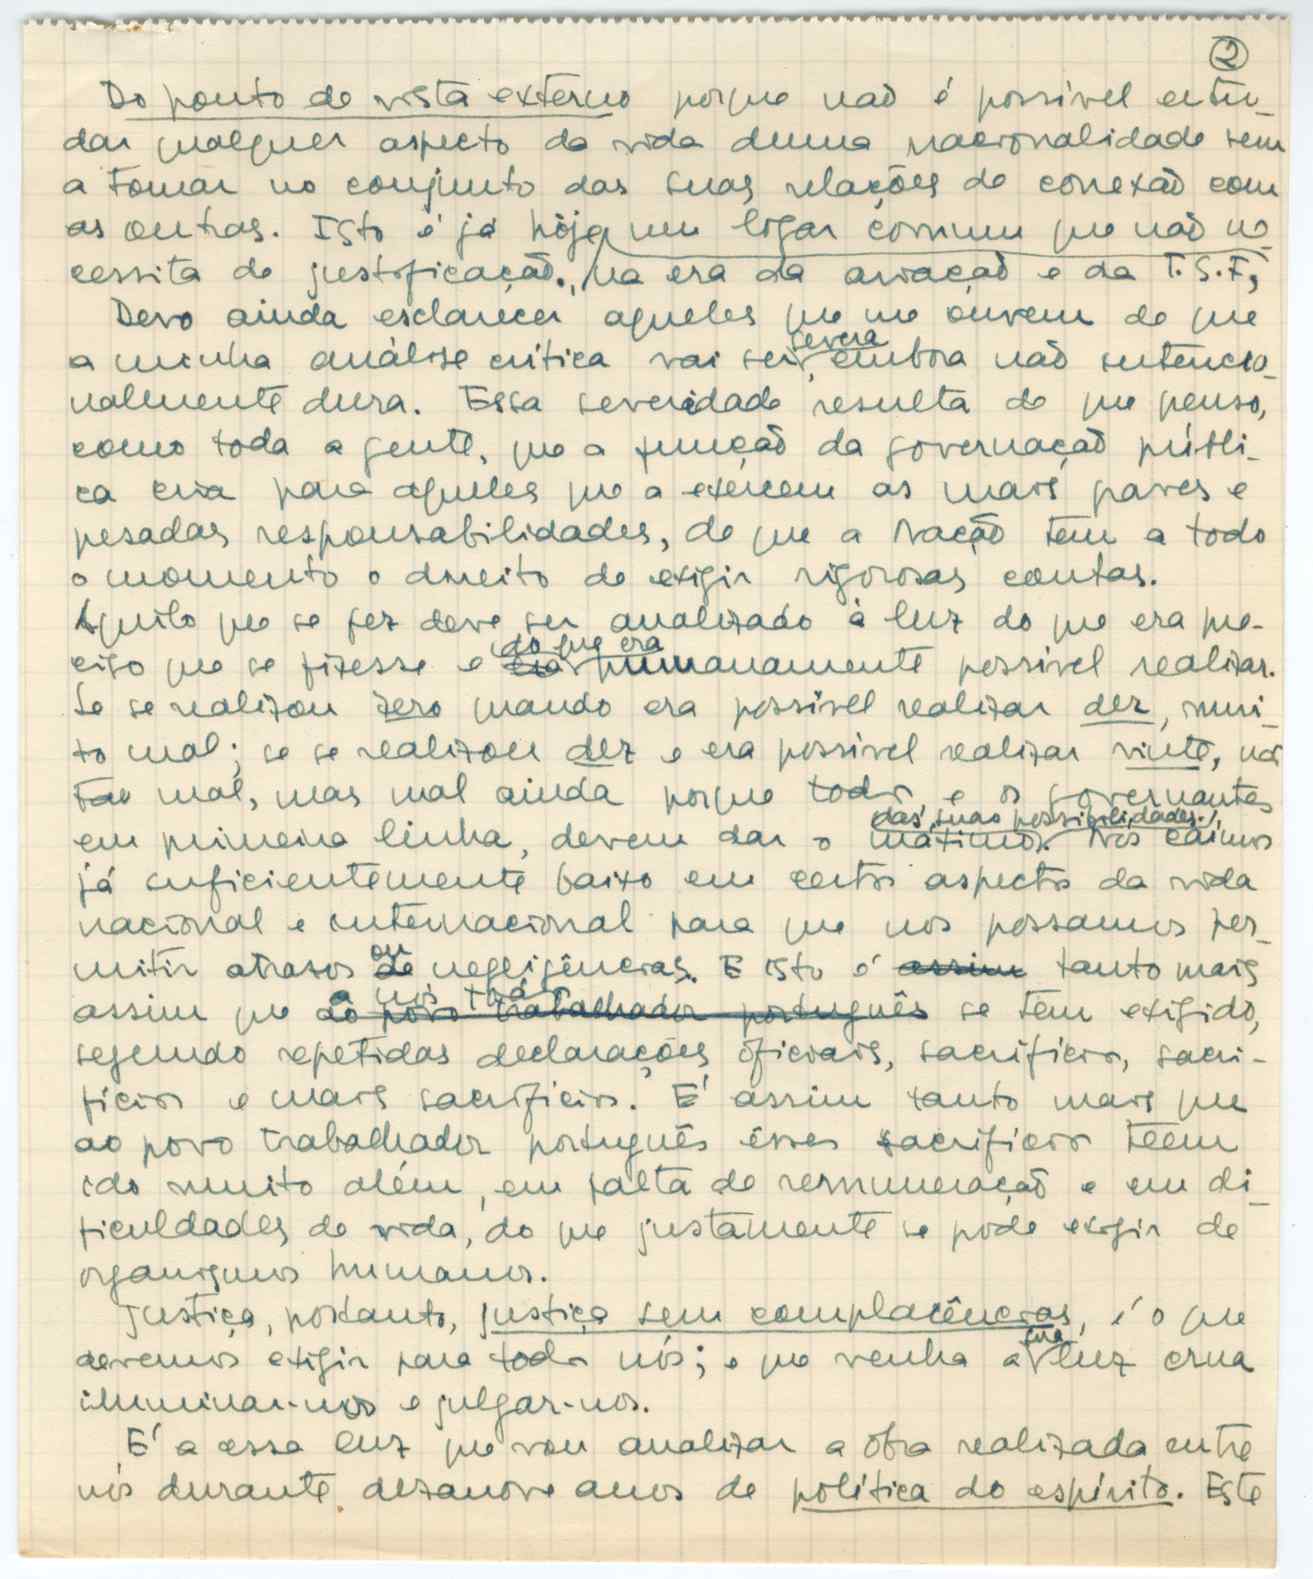 2
Do ponto de vista externo porque não é possível estu-
dar qualquer aspecto da vida duma nacionalidade sem
a tomar no conjunto das suas relações de conexão com
as outras. Isto é já hoje um logar comum que não ne-
cessita de justificação, na era da aviação e da T.S.F,
Devo ainda esclarecer aqueles que me ouvem de que
a minha análise crítica vai ser severa embora não intencio-
nalmente dura. Essa severidade resulta de que penso,
como toda a gente, que a função da governação públi-
ca cria para aqueles que a exercem as mais graves e
pesadas responsabilidades, de que a Nação tem a todo
o momento o direito de exigir rigorosas contas.
Aquilo que se fez deve ser analizado à luz do que era pre-
ciso que se fizesse e do que era humanamente possível realizar.
Se se realizou zero quando era possível realizar dez, mui-
to mal; se se realizou dez e era possível realizar vinte,
mal, mas mal ainda porque todos e os governantes
em primeira linha, devem dar o máximo das suas possibilidades. Nós caímos
já suficientemente baixo em certos aspectos da vida
nacional e internacional para que nos possamos per-
mitir atrasos ou negligências. E isto é assim tanto mais
assim que a nós ao povo trabalhador português se tem exigido,
segundo repetidas declarações oficiais, sacrifícios, sacri-
fícios e mais sacrifícios. É assim tanto mais que
ao povo trabalhador português êsses sacrifícios teem
ido muito além, em falta de remuneração e em di-
ficuldades de vida, do que justamente se pode exigir de
organismos humanos.
Justiça, portanto, justiça sem complacências, é o que
devemos exigir para todos nós; e que venha a sua luz crua
iluminar-nos e julgar-nos.
É a essa luz que vou analizar a obra realizada entre
nós durante dezanove anos de política do espírito. Este